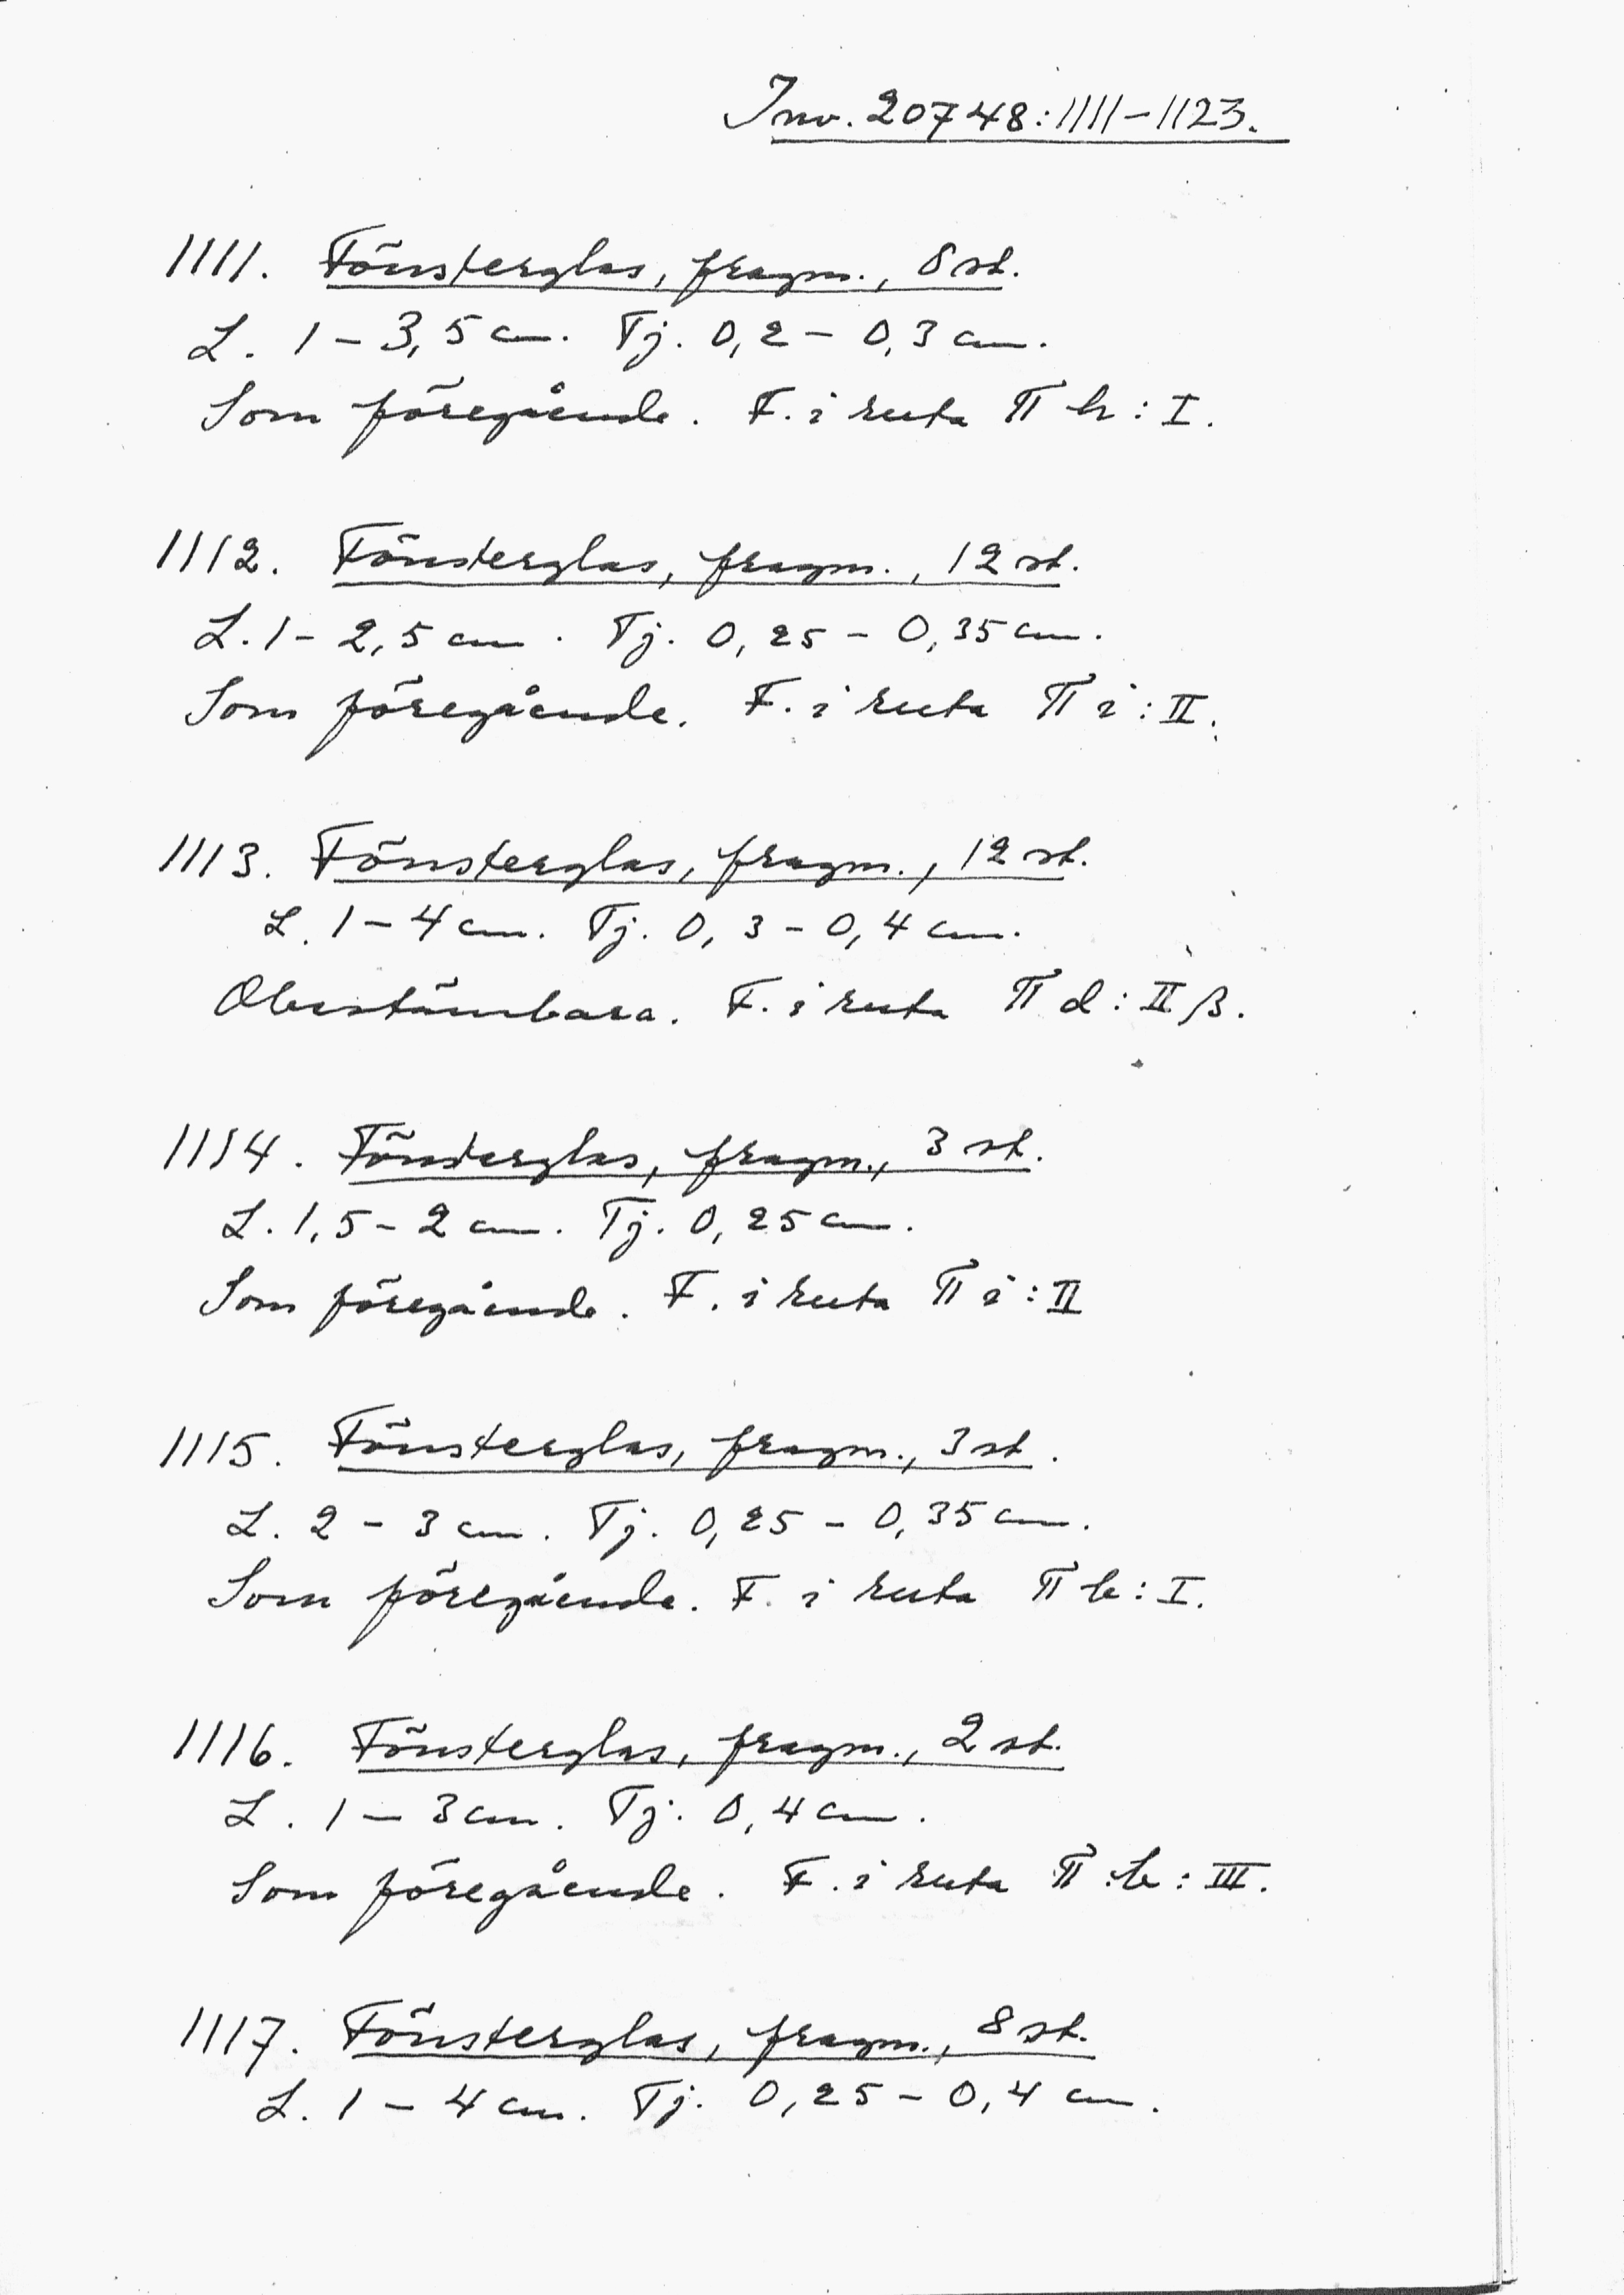 Inv. 20748:1111-1123.
1111. Fönsterglas, fragm., 8 st.
L. 1-3,5 cm. Tj. 0,2-0,3 cm.
Som föregående. F. i ruta π h: I.
1112. Fönsterglas, fragm., 12 st.
L. 1-2,5 cm. Tj. 0,25-0,35 cm.
Som föregående. F. i ruta π i: II.
1113. Fönsterglas, fragm., 12 st.
L. 1-4 cm. Tj. 0,3-0,4 cm.
Obestämbara. F. i ruta π d: II β.
1114. Fönsterglas, fragm., 3 st.
L. 1,5-2 cm. Tj. 0,25 cm.
Som föregående. F. i ruta π i: II
1115. Fönsterglas, fragm., 3 st.
L. 2-3 cm. Tj. 0,25-0,35 cm.
Som föregående. F. i ruta π : I.
1116. Fönsterglas, fragm., 2 st.
L. 1-3 cm. Tj. 0,4 cm.
Som föregående. F. i ruta π : III.
1117. Fönsterglas, fragm., 8 st.
L. 1-4 cm. Tj. 0,25-0,4 cm.